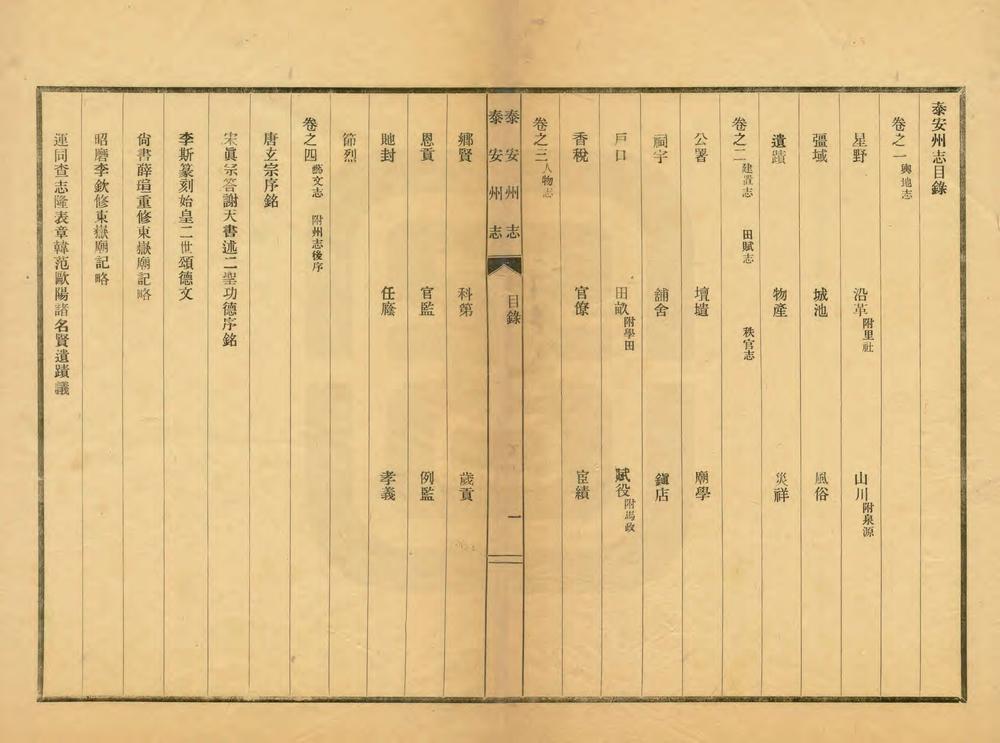 泰安州志目錄
卷之一 輿地志
星野 沿革 附里社 山川 附泉源
彊域 城池 風俗
遺蹟 物產 災祥
卷之二 建置志 田賦志 秩官志
公署 壇壝 廟學
祠宇 舖舍 鎭店
戶口 田畝 附學田 賦役 附馬政
香稅 官僚 宦績
卷之三 人物志
泰安州志
泰安州志 目錄 一
鄉賢 科第 歲貢
恩貢 官監 例監
貤封 任廕 孝義
節烈
卷之四 藝文志 附州志後序
唐玄宗序銘
宋眞宗答謝天書述二聖功德序銘
李斯篆刻始皇二世頌德文
尙書薛瑄重修東嶽廟記略
昭磨李欽修東嶽廟記略
運同查志隆表章韓范歐陽諸名賢遺蹟議